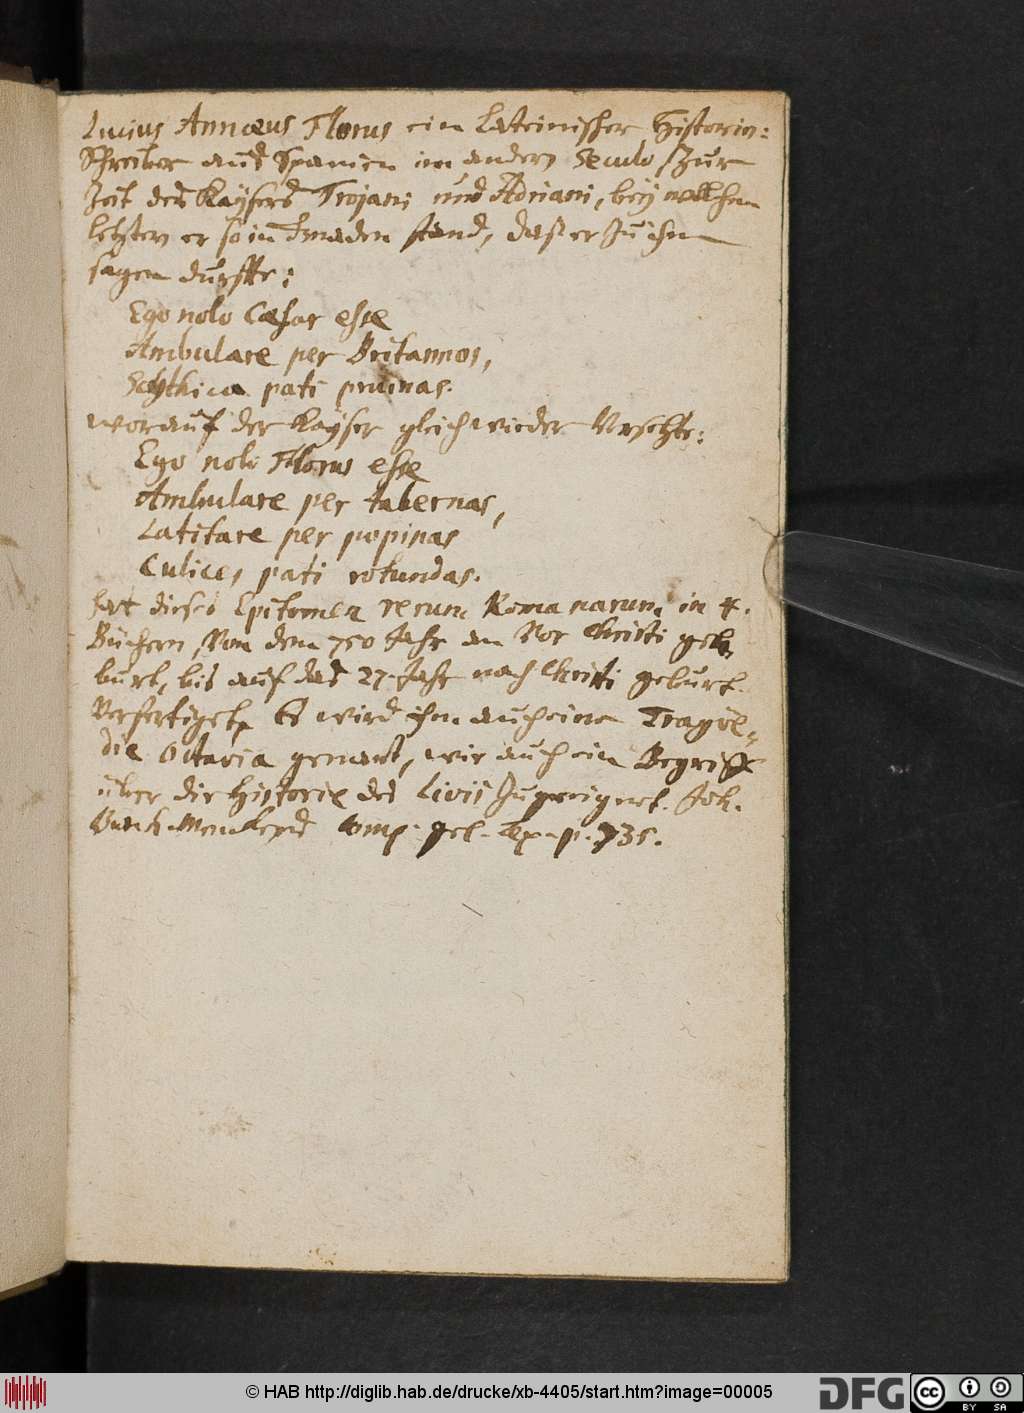 Lucius Annæus Florus ein Lateinischer Historien-
Schreiber aus Spanien im andern Seculo /zur
Zeit des Kaysers Trojani und Adriani, bey welchem
letztern er so in Gnaden stand, daß er zu ihm
sagen durffte:
Ego nolo Cæsar esse
Ambulare per Britannos,
Scythica pati pruinas.
worauf der Kayser gleich wieder versetzte:
Ego nolo Florus esse
Ambulare per tabernas,
Latitare per popinas
Culices pati rotundas.
hat dieses Epitomen rerum Romanarum in 4.
Büchern, von dem 750 Jahr an vor Christi geb
burt, bis auf das 27. Jahr nach Christi geburt
verfertiget, Es wird ihm auch eine Tragœ-
die Octavia genant, wie auch ein Begriff
über die Historie des Livii zugeeignet. Joh.
Burch Menckens Comp. gel. Lex. p. 735.
© HAB http://diglib.hab.de/drucke/xb-4405/start.htm?image=00005
DFG
cc
BY SA